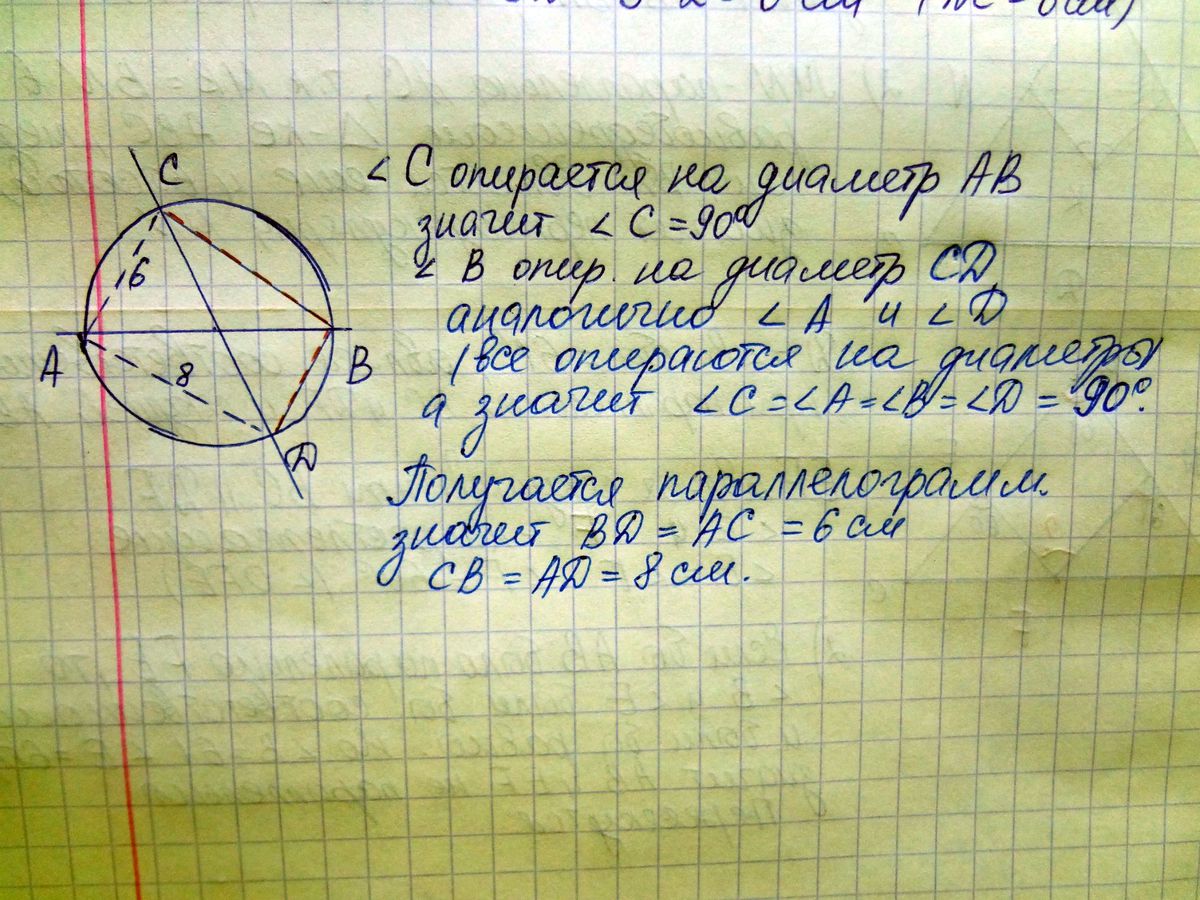 ∠ C опирается на диаметр AB
значит ∠ C = 90°
∠ B опир. на диаметр CD,
аналогично ∠ A и ∠ D
(все опираются на диаметры)
а значит ∠C = ∠A = ∠B = ∠D = 90°.
Получается параллелограмм.
значит BD = AC = 6 см
CB = AD = 8 см.
C
6
A
8
B
D